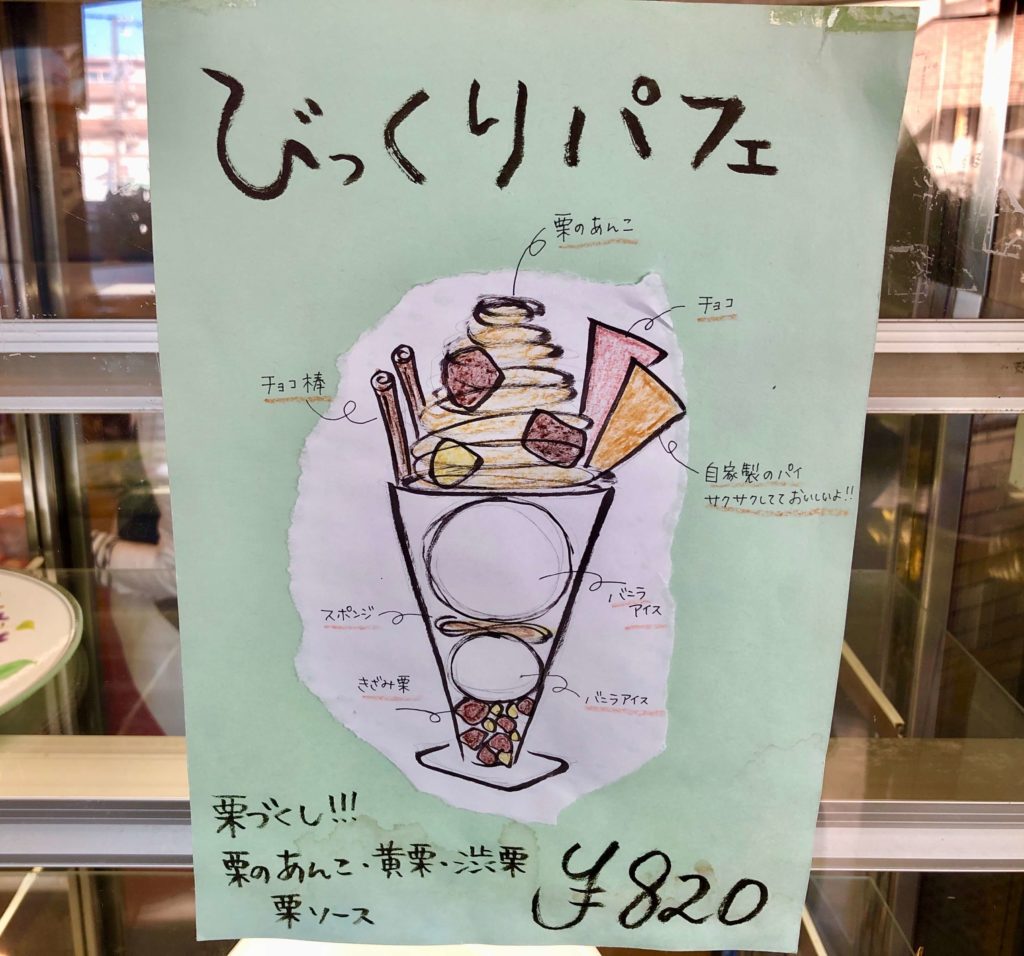 びっくりパフェ
栗のあんこ
チョコ
チョコ棒
自家製のパイ
サクサクしてておいしいよ!!
バニラ
アイス
スポンジ
きざみ栗
バニラアイス
栗づくし!!!
栗のあんこ・黄栗・渋栗
栗ソース
¥820